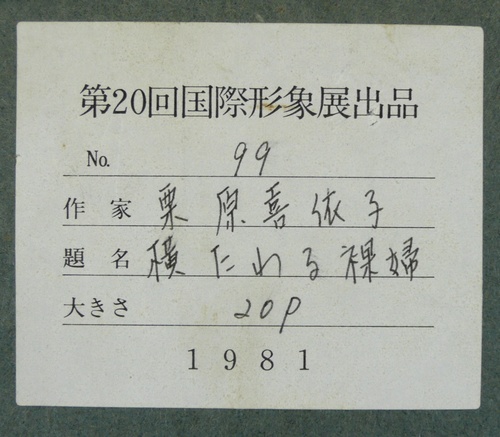 第20回国際形象展出品
No. 99
作家 栗原喜依子
題名 横たわる裸婦
大きさ 20P
1981